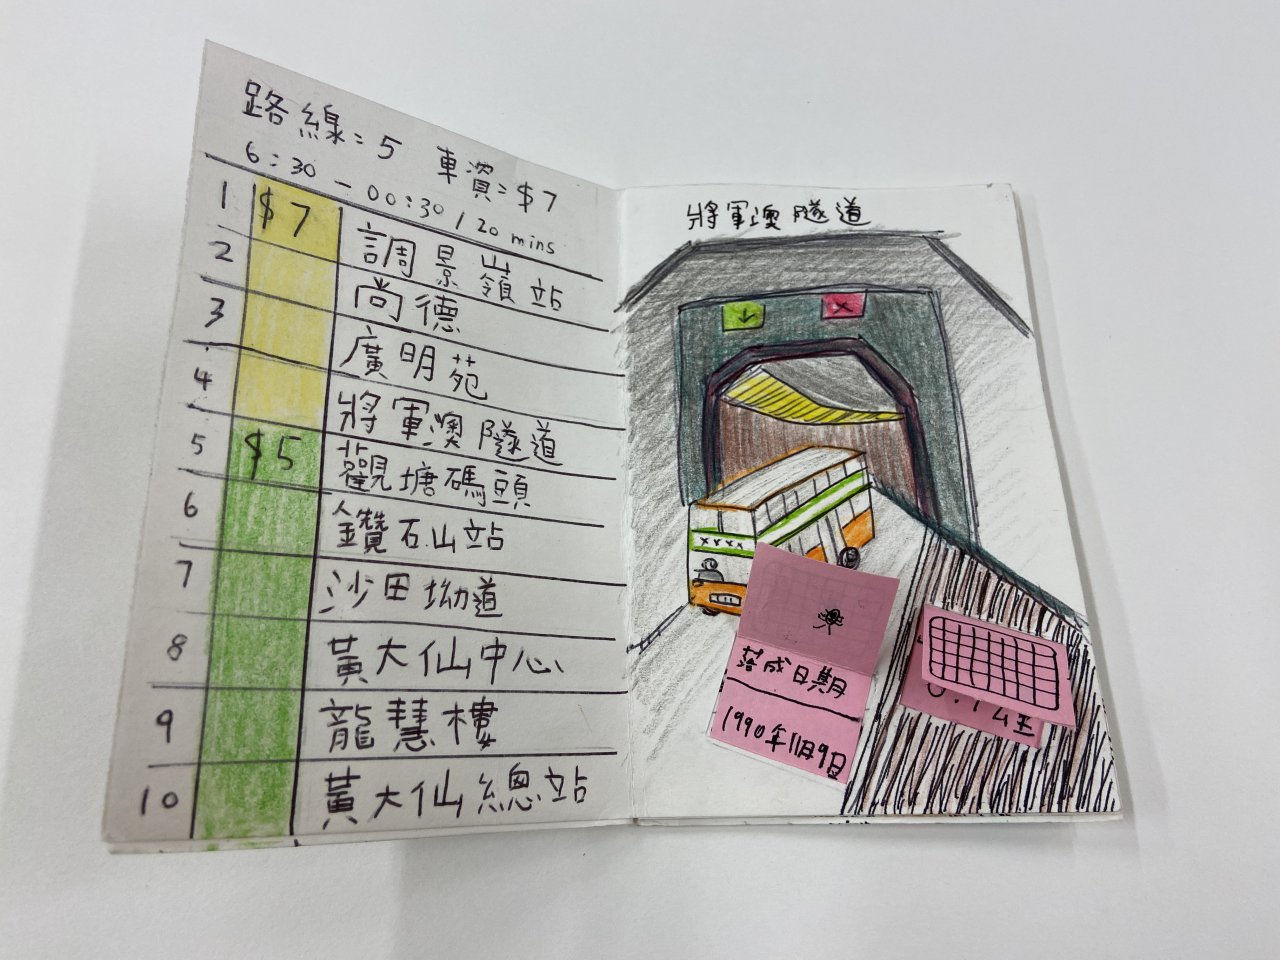 路線: 5 車資: $7
6:30 - 00:30 / 20 mins
1 $7 調景嶺站
2 尚德
3 廣明苑
4 將軍澳隧道
5 $5 觀塘碼頭
6 鑽石山站
7 沙田坳道
8 黃大仙中心
9 龍慧樓
10 黃大仙總站
將軍澳隧道
落成日期
1990年11月9日